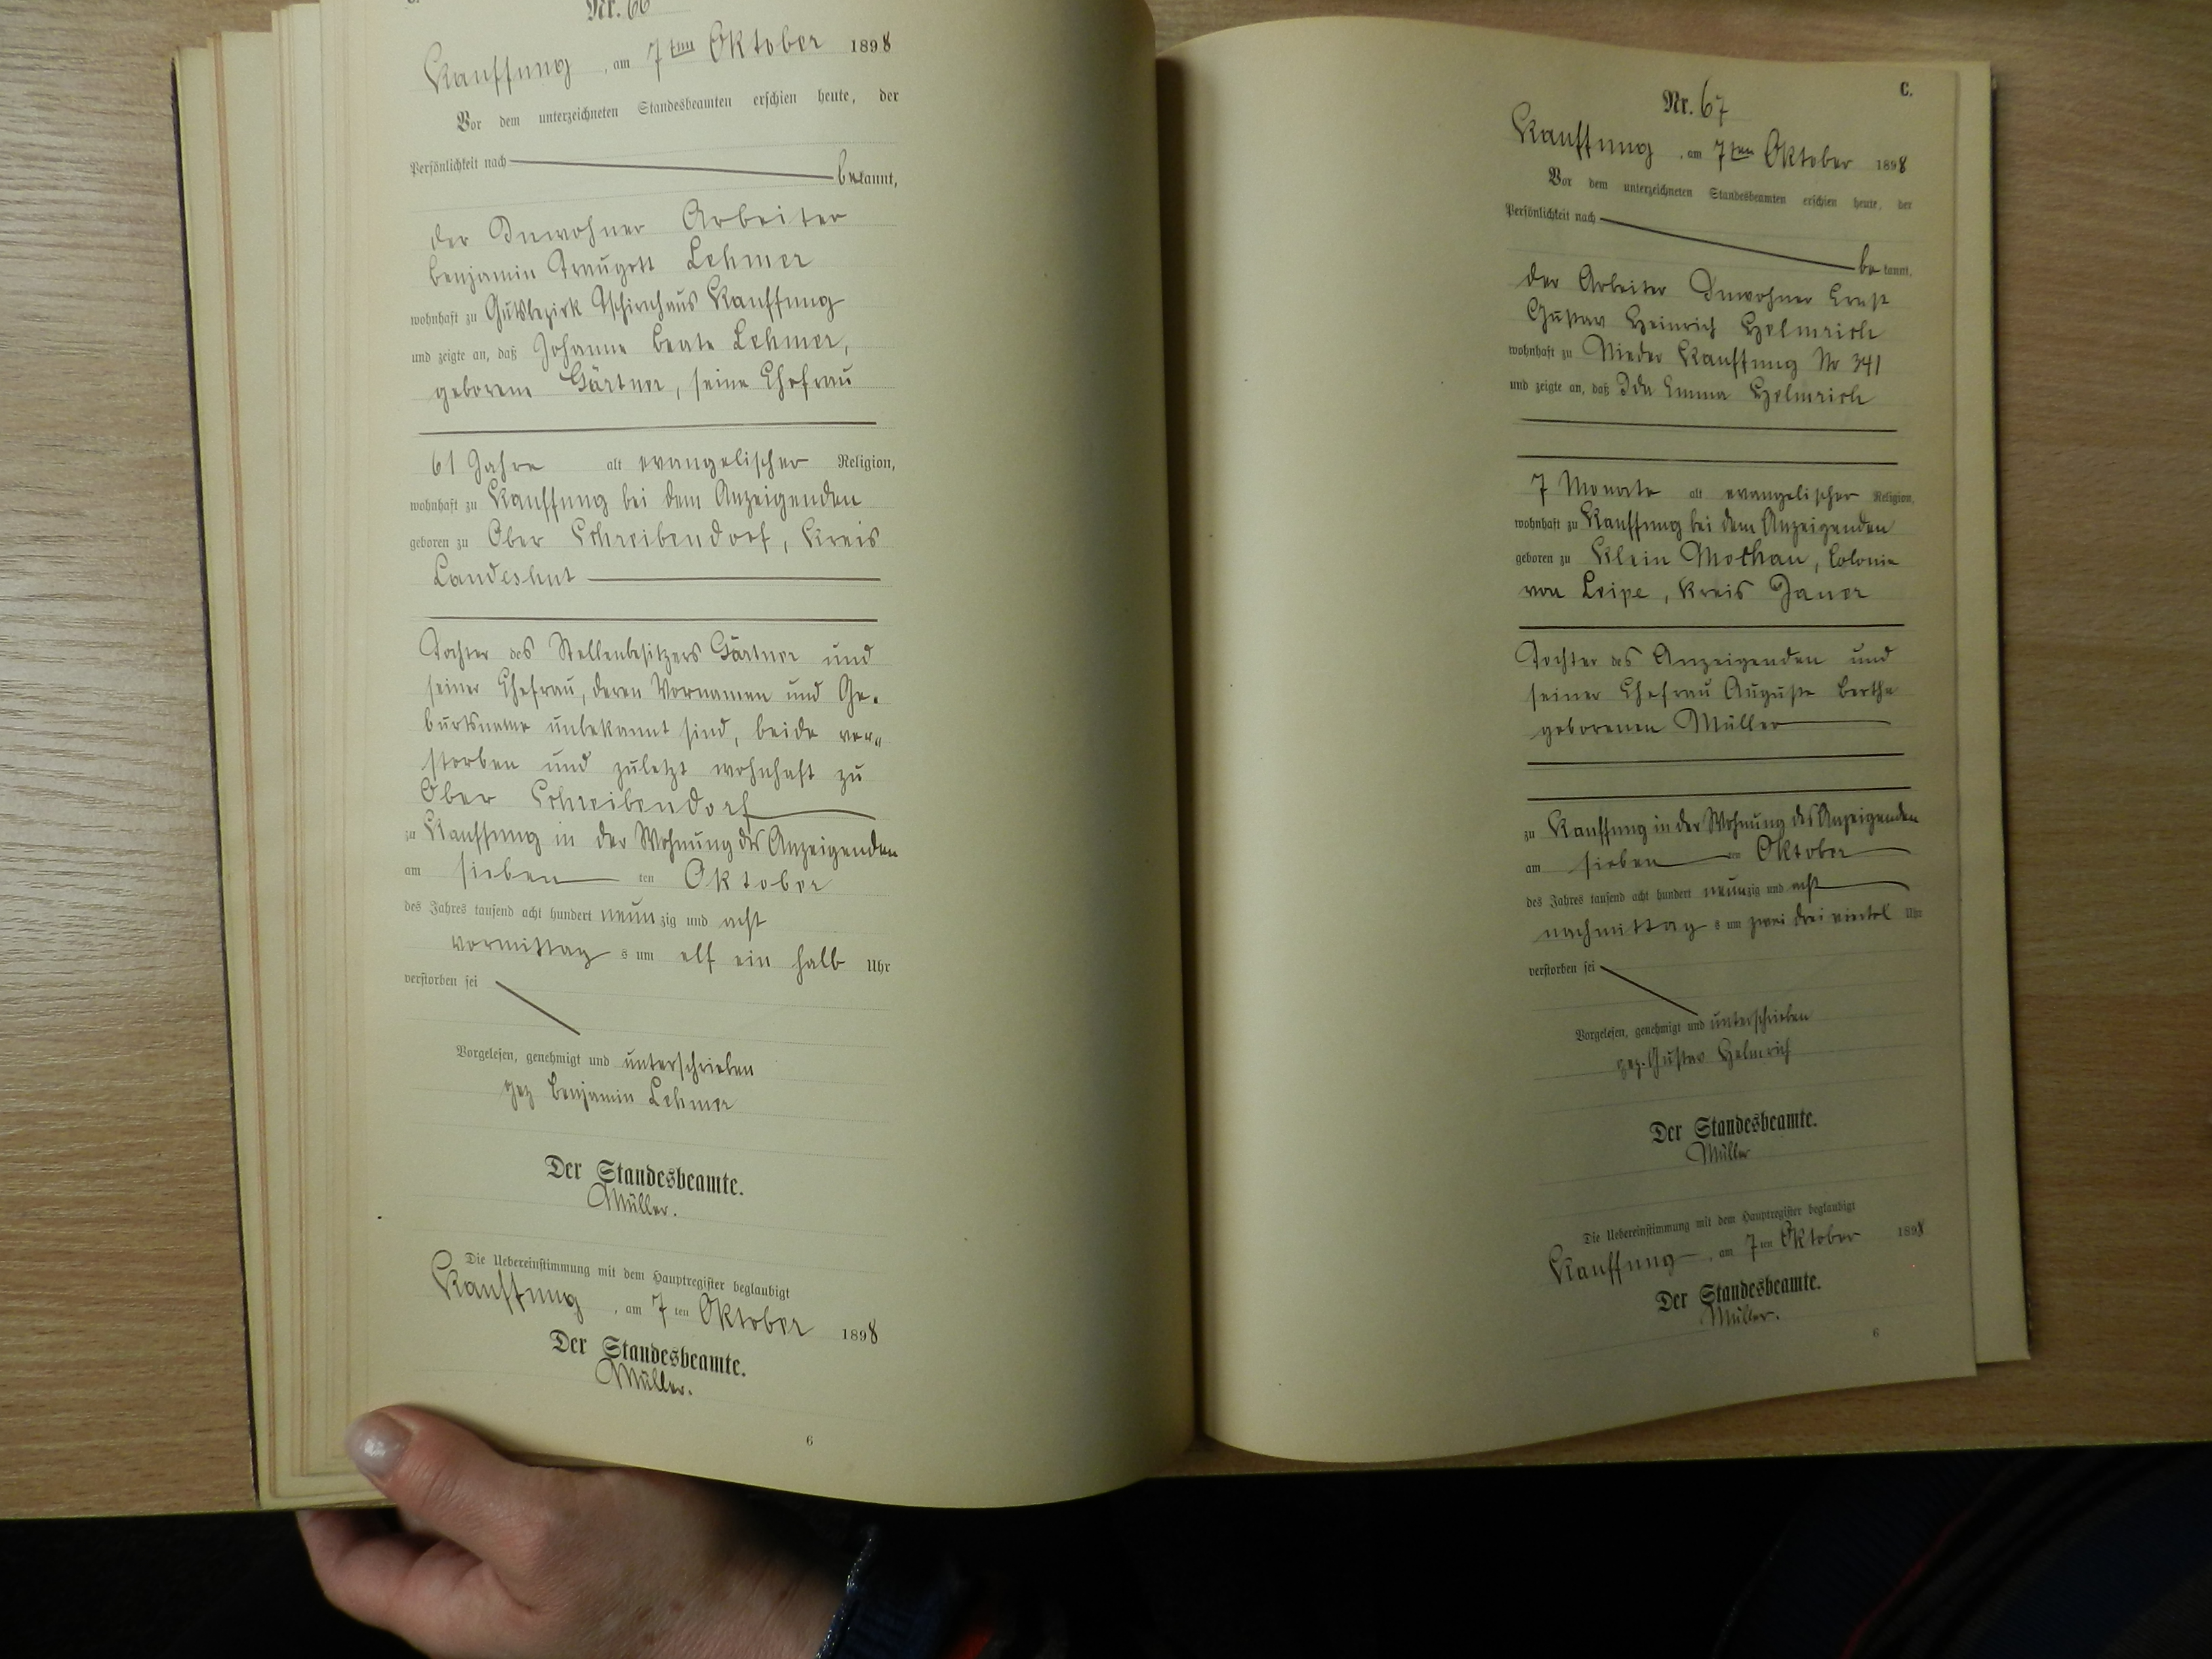 C.
Nr. 66
Kauffung, am 7ten Oktober 1898
Vor dem unterzeichneten Standesbeamten erschien heute, der
Persönlichkeit nach bekannt,
der Inwohner Arbeiter
Benjamin Traugott Lehmer
wohnhaft zu Gutsbezirk Tschirnhaus Kauffung
und zeigte an, daß Johanne Beate Lehmer,
geborene Gärtner, seine Ehefrau
61 Jahre alt evangelischer Religion,
wohnhaft zu Kauffung bei dem Anzeigenden
geboren zu Ober Schreibendorf, Kreis
Landeshut
Tochter des Stellenbesitzers Gärtner und
seiner Ehefrau, deren Vornamen und Ge-
burtsname unbekannt sind, beide ver-
storben und zuletzt wohnhaft zu
Ober Schreibendorf
zu Kauffung in der Wohnung des Anzeigenden
am siebenten Oktober
des Jahres tausend acht hundert neunzig und acht
vormittags um elf ein halb Uhr
verstorben sei
Vorgelesen, genehmigt und unterschrieben
gez Benjamin Lehmer
Der Standesbeamte.
Müller.
Die Uebereinstimmung mit dem Hauptregister beglaubigt
Kauffung, am 7ten Oktober 1898
Der Standesbeamte.
Müller.
6
C.
Nr. 67
Kauffung, am 7ten Oktober 1898
Vor dem unterzeichneten Standesbeamten erschien heute, der
Persönlichkeit nach
bekannt,
der Arbeiter Inwohner Ernst
Gustav Heinrich Helmrich
wohnhaft zu Nieder Kauffung No 341
und zeigte an, daß Ida Emma Helmrich
7 Monate alt evangelischer Religion,
wohnhaft zu Kauffung bei dem Anzeigenden
geboren zu Klein Mochau, Colonie
von Leipe, Kreis Jauer
Tochter des Anzeigenden und
seiner Ehefrau Auguste Berthe
geborenen Müller
zu Kauffung in der Wohnung des Anzeigenden
am siebenten Oktober
des Jahres tausend acht hundert neunzig und acht
nachmittags um zwei drei viertel Uhr
verstorben sei
Vorgelesen, genehmigt und unterschrieben
gez. Gustav Helmrich
Der Standesbeamte.
Müller
Die Uebereinstimmung mit dem Hauptregister beglaubigt
Kauffung, am 7ten Oktober 1898
Der Standesbeamte.
Müller.
6